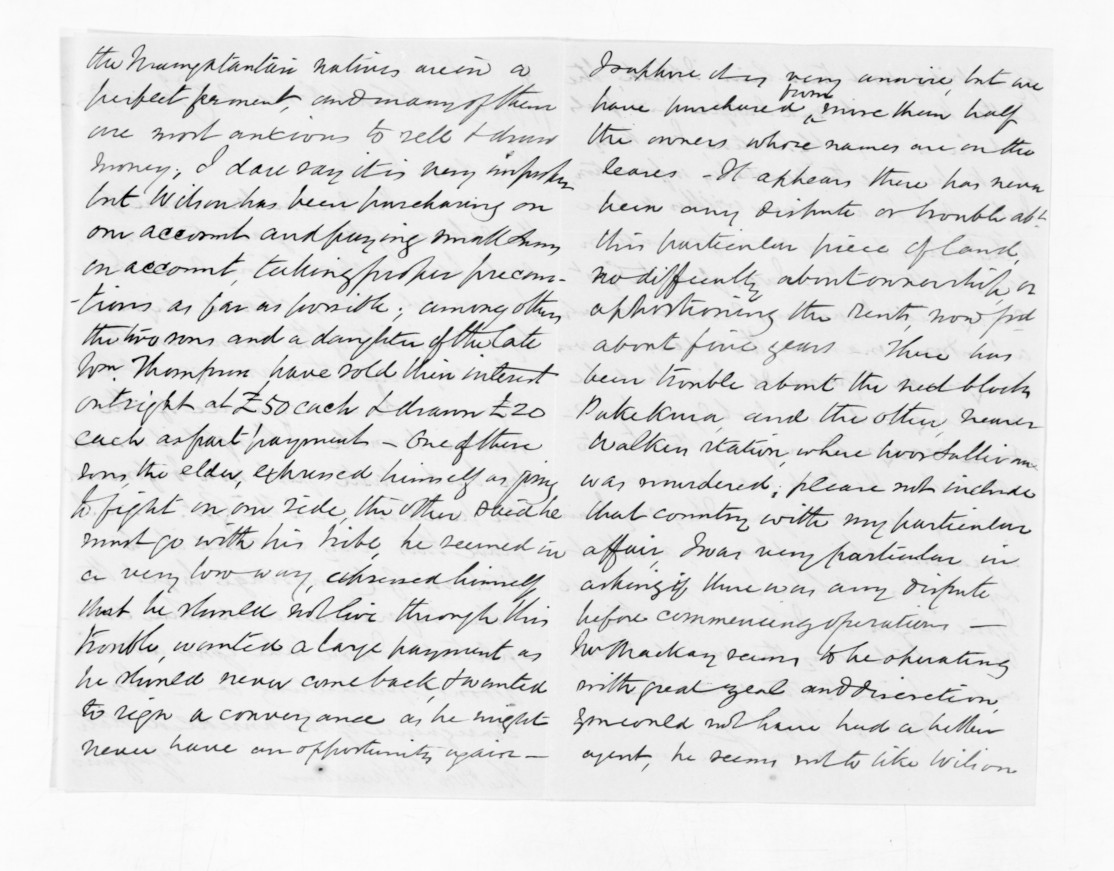 the natives are in a
perfect ferment, and many of them
are most anxious to sell & draw
money, I dare say it is very improper
but Wilson has been purchasing on
our account and paying small sums
on account, taking proper precau-
-tions as far as possible; among others
the two sons and a daughter of the late
Wm. Thompson have sold their interest
outright at £50 each & drawn £20
each as part payment - One of these
sons the elder, expressed himself as going
to fight on our side, the other said he
must go with his tribe, he seemed in
a very low way, expressed himself
that he should not live through this
trouble, wanted a large payment as
he should never come back, & wanted
to sign a conveyance as he might
never have an opportunity again -
I suppose it is very unwise, but we
have purchased from more than half
the owners whose names are on the
leases - It appears there has never
been any dispute or trouble abt
this particular piece of land,
no difficulty about ownership, or
apportioning the rents, now pd
about five years There has
been trouble about the next block
Pukekura, and the other, nearer
Walkers station, where poor Sullivan
was murdered; please not include
that country with my particular
affair, I was very particular in
asking if there was any dispute
before commencing operations -
Mr Mackay seems to be operating
with great zeal and discretion,
you could not have had a better
agent, he seems not to like Wilson